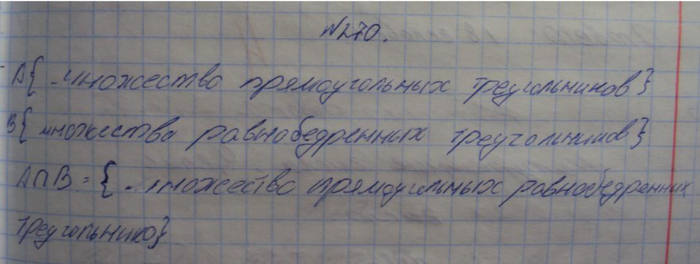 №270.
A{ множество прямоугольных треугольников}
B{ множества равнобедренных треугольников}
A∩B = { множество прямоугольных равнобедренных
треугольнико}